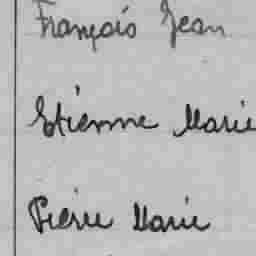 François Jean
Etienne Marie
Pierre Marie